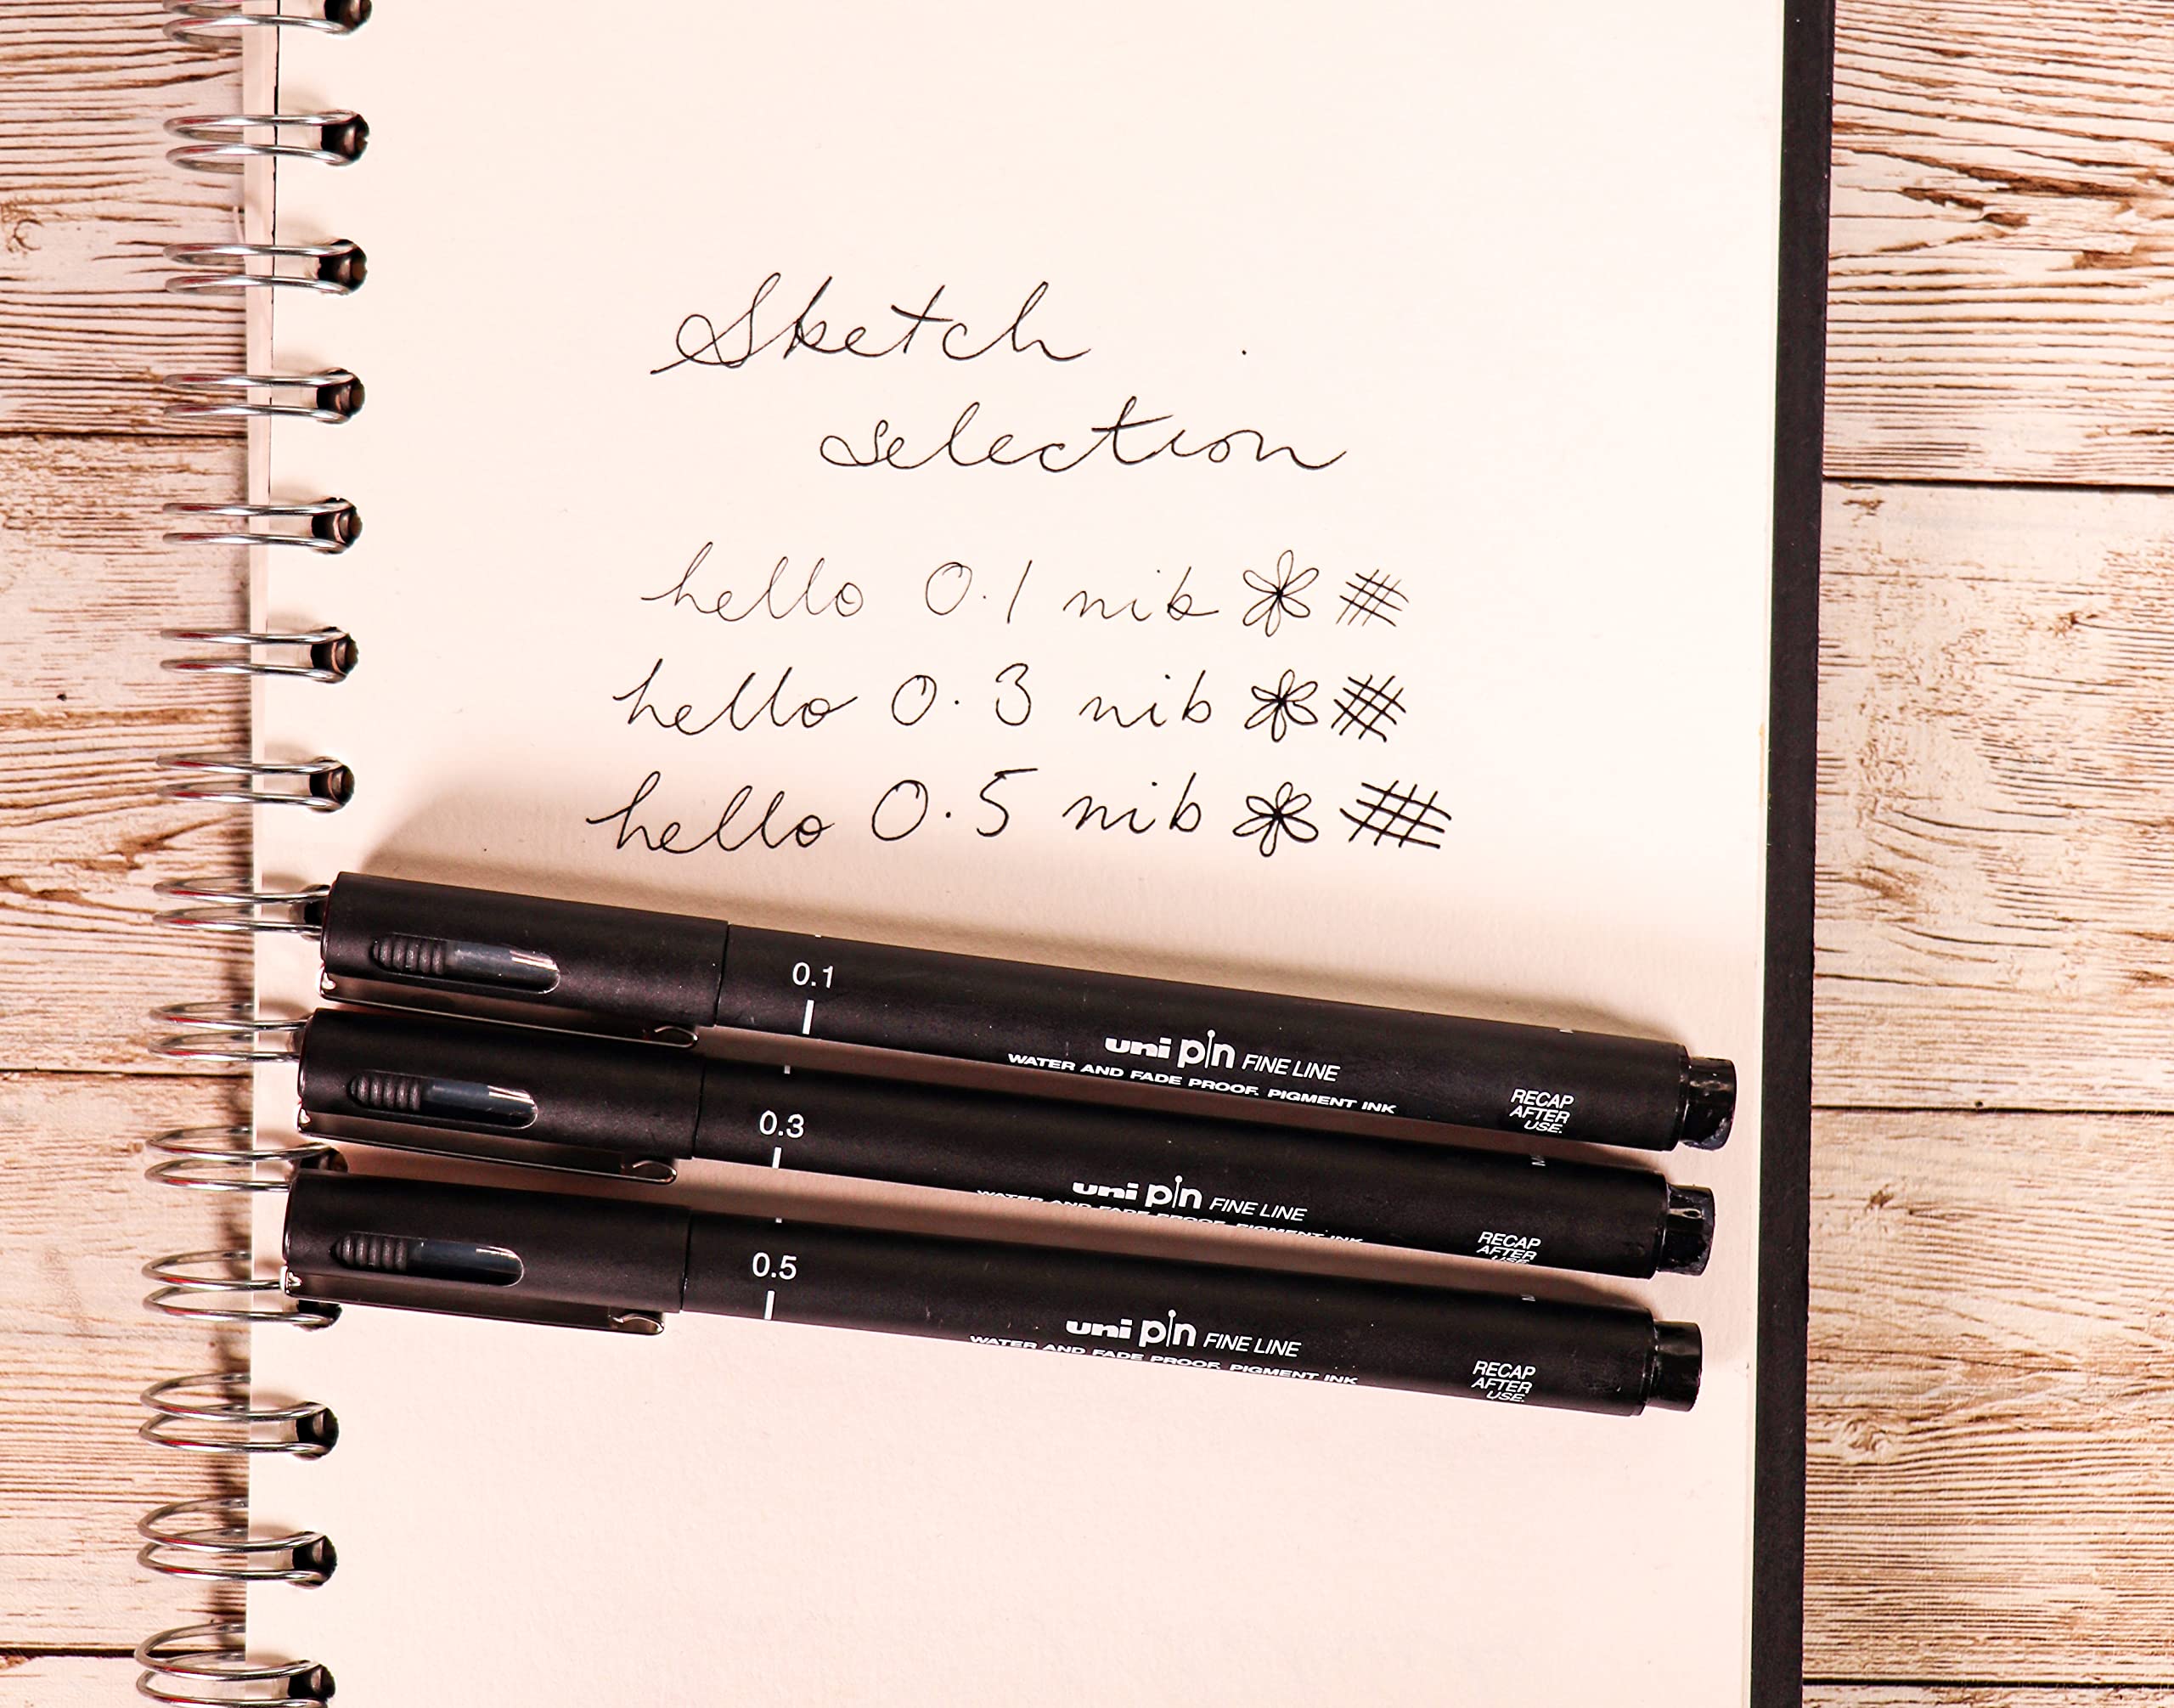 Sketch
selection
hello 0.1 nib
hello 0.3 nib
hello 0.5 nib
0.1
uni pin FINE LINE
WATER AND FADE PROOF. PIGMENT INK
RECAP
AFTER
USE.
0.3
uni pin FINE LINE
WATER AND FADE PROOF. PIGMENT INK
RECAP
AFTER
USE.
0.5
uni pin FINE LINE
WATER AND FADE PROOF. PIGMENT INK
RECAP
AFTER
USE.